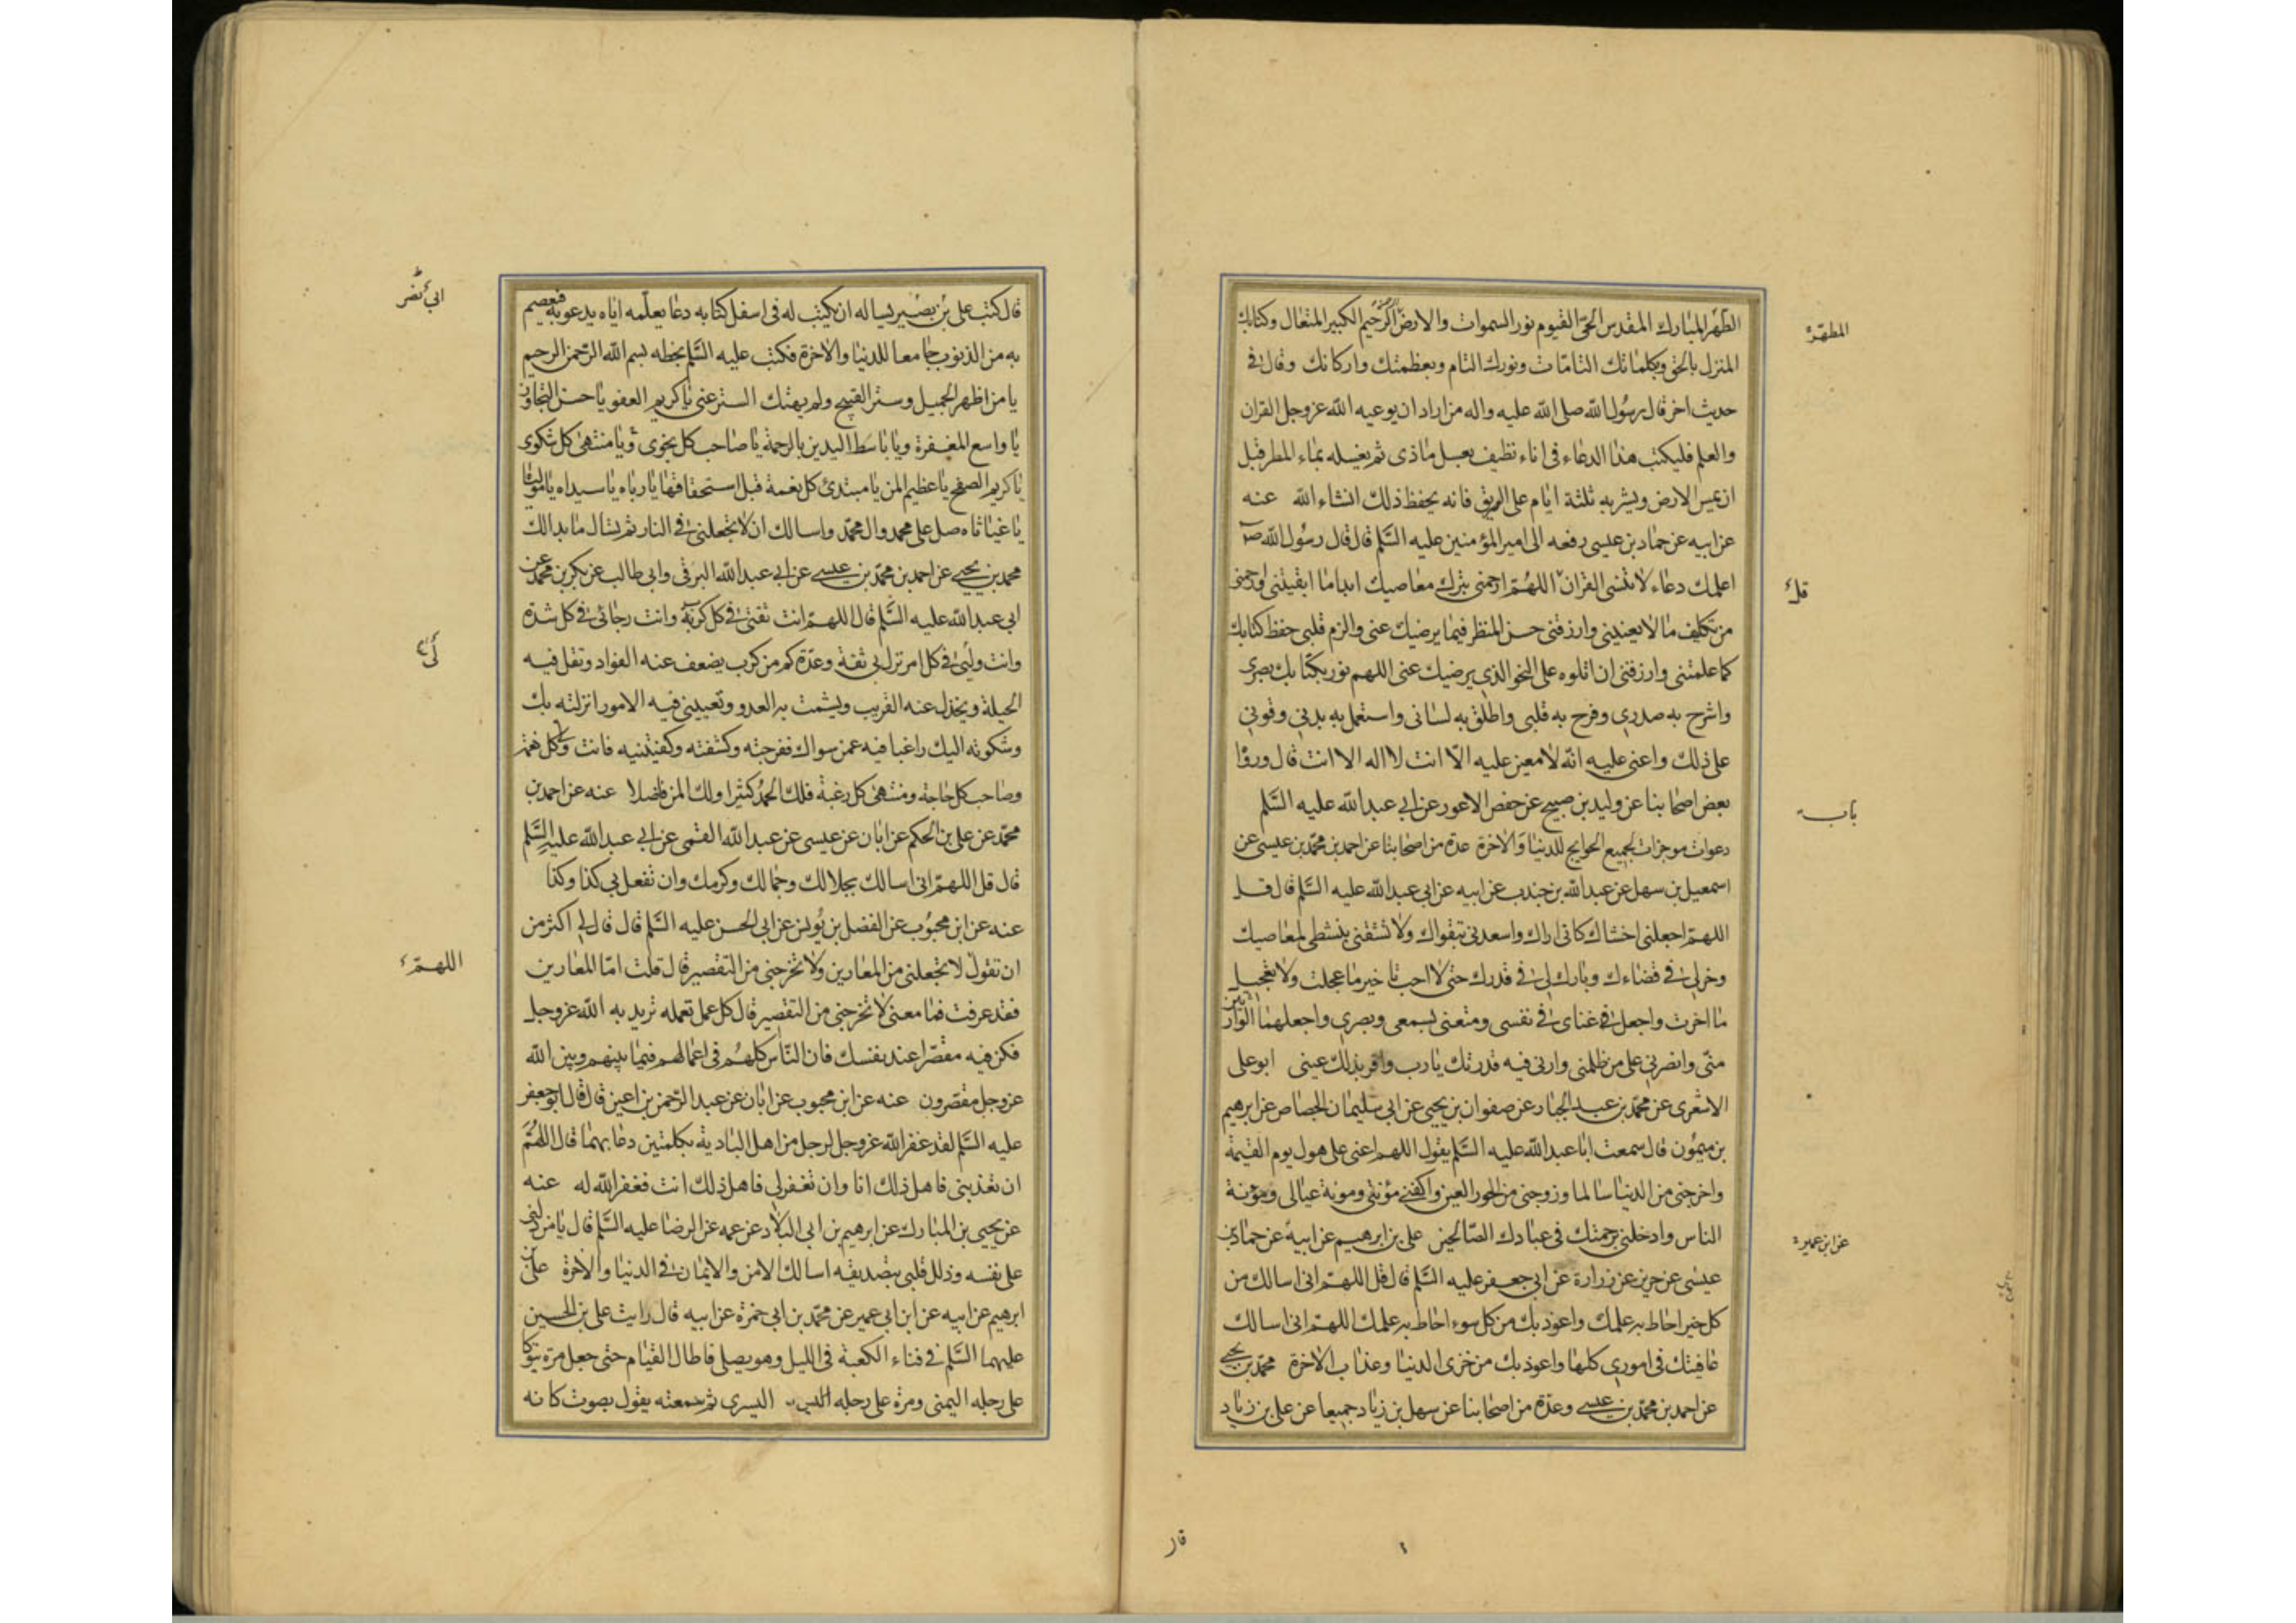 الطهر المبارك المقدس الحى القيوم نور السموات والارض الرحمن الرحيم الكبير المتعال وكتابك
المنزل بالحق وبكلماتك التامات ونورك التام وبعظمتك واركانك وقال فى
حديث اخر قال رسول الله صلى الله عليه واله من اراد ان يوعيه الله عز وجل القران
والعلم فليكتب هذا الدعاء فى اناء نظيف بعسل ماذى ثم يغسله بماء المطر قبل
ان يمس الارض ويشربه ثلثة ايام على الريق فانه يحفظ ذلك انشاء الله عنه
عن ابيه عن حماد بن عيسى رفعه الى امير المؤمنين عليه السلم قال قال رسول الله ص
اعلمك دعاء لا تنسى القران اللهم ارحمنى بترك معاصيك ابدا ما ابقيتنى وارحمنى
من تكليف ما لا يعنينى وارزقنى حسن المنظر فيما يرضيك عنى والزم قلبى حفظ كتابك
كما علمتنى وارزقنى ان اتلوه على النحو الذى يرضيك عنى اللهم نور بكتابك بصرى
واشرح به صدرى وفرح به قلبى واطلق به لسانى واستعمل به بدنى وقونى
على ذلك واعنى عليه انه لا معين عليه الا انت لا اله الا انت قال ورواه
بعض اصحابنا عن وليد بن صبيح عن حفص الاعور عن ابى عبد الله عليه السلم
دعوات موجزات لجميع الحوايج للدنيا والاخرة عدة من اصحابنا عن احمد بن محمد بن عيسى عن
اسمعيل بن سهل عن عبد الله بن جندب عن ابيه عن ابى عبد الله عليه السلم قال قل
اللهم اجعلنى اخشاك كانى اراك واسعدنى بتقواك ولا تشقنى بنشطى لمعاصيك
وخر لى فى قضاءك وبارك لى فى قدرك حتى لا احب تاخير ما عجلت ولا تعجيل
ما اخرت واجعل غناى فى نفسى ومتعنى بسمعى وبصرى واجعلهما الوارثين
منى وانصرنى على من ظلمنى وارنى فيه قدرتك يا رب واقر بذلك عينى ابو على
الاشعرى عن محمد بن عبد الجبار عن صفوان بن يحيى عن ابى سليمان الجصاص عن ابرهيم
بن ميمون قال سمعت ابا عبد الله عليه السلم يقول اللهم اعنى على هول يوم القيمة
واخرجنى من الدنيا سالما وزوجنى من الحور العين واكفنى مؤنتى ومونة عيالى ومؤنة
الناس وادخلنى برحمتك فى عبادك الصالحين على بن ابرهيم عن ابيه عن حماد بن
عيسى عن حريز عن زرارة عن ابى جعفر عليه السلم قال قل اللهم انى اسالك من
كل خير احاط به علمك واعوذ بك من كل سوء احاط به علمك اللهم انى اسالك
عافيتك فى امورى كلها واعوذ بك من خزى الدنيا وعذاب الاخرة محمد بن يحيى
عن احمد بن محمد بن عيسى وعدة من اصحابنا عن سهل بن زياد جميعا عن على بن زياد
المطهر
قل
باب
عن ابن عمير
قال
قال كتب على بن بصير يساله ان يكتب له فى اسفل كتابه دعا يعلمه اياه يدعو به فيعصم
به من الذنوب جامعا للدنيا والاخرة فكتب عليه السلم بخطه بسم الله الرحمن الرحيم
يا من اظهر الجميل وستر القبيح ولم يهتك الستر عنى يا كريم العفو يا حسن التجاوز
يا واسع المغفرة ويا باسط اليدين بالرحمة يا صاحب كل نجوى ويا منتهى كل شكوى
يا كريم الصفح يا عظيم المن يا مبتدئ كل نعمة قبل استحقاقها يا رباه يا سيداه يا مولياه
يا غياثاه صل على محمد وال محمد واسالك ان لا تجعلنى فى النار ثم تسال ما بدا لك
محمد بن يحيى عن احمد بن محمد بن عيسى عن ابى عبد الله البرقى وابى طالب عن بكر بن محمد عن
ابى عبد الله عليه السلم قال اللهم انت ثقتى فى كل كربة وانت رجائى فى كل شدة
وانت وليى فى كل امر نزل بى ثقة وعدة كم من كرب يضعف عنه الفواد وتقل فيه
الحيلة ويخذل عنه القريب ويشمت به العدو وتعيينى فيه الامور انزلته بك
وشكوته اليك راغبا فيه عمن سواك ففرجته وكشفته وكفيتنيه فانت ولى كل نعمة
وصاحب كل حاجة ومنتهى كل رغبة فلك الحمد كثيرا ولك المن فاضلا عنه عن احمد بن
محمد عن على بن الحكم عن ابان عن عيسى عن عبد الله القمى عن ابى عبد الله عليه السلم
قال قل اللهم انى اسالك بجلالك وجمالك وكرمك وان تفعل بى كذا وكذا
عنه عن ابن محبوب عن الفضل بن يونس عن ابى الحسن عليه السلم قال قال لى اكثر من
ان تقول لا تجعلنى من المعارين ولا تخرجنى من التقصير قال قلت اما المعارين
فقد عرفت فما معنى لا تخرجنى من التقصير قال كل عمل تعمله تريد به الله عز وجل
فكن فيه مقصرا عند نفسك فان الناس كلهم فى اعمالهم فيما بينهم وبين الله
عز وجل مقصرون عنه عن ابن محبوب عن ابان عن عبد الرحمن بن اعين قال قال ابو جعفر
عليه السلم لقد غفر الله عز وجل لرجل من اهل البادية بكلمتين دعا بهما قال اللهم
ان تعذبنى فاهل ذلك انا وان تغفر لى فاهل ذلك انت فغفر الله له عنه
عن يحيى بن المبارك عن ابرهيم بن ابى البلاد عن عمه عن الرضا عليه السلم قال يا من دلنى
على نفسه وذلل قلبى بتصديقه اسالك الامن والايمان فى الدنيا والاخرة على بن
ابرهيم عن ابيه عن ابن ابى عمير عن محمد بن ابى حمزة عن ابيه قال رايت على بن الحسين
عليهما السلم فى فناء الكعبة فى الليل وهو يصلى فاطال القيام حتى جعل مرة يتوكا
على رجله اليمنى ومرة على رجله اليسرى ثم سمعته يقول بصوت كانه
ابى نصر
لى
اللهم